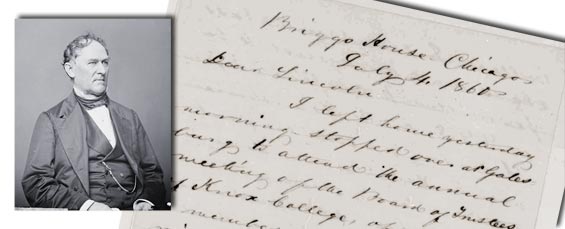 Briggs House Chicago
July 4, 1860
Dear Lincoln
I left home yesterday
morning - stopped over at Gales-
burg to attend the annual
meeting of the Board of Trustees
of Knox College, of
member